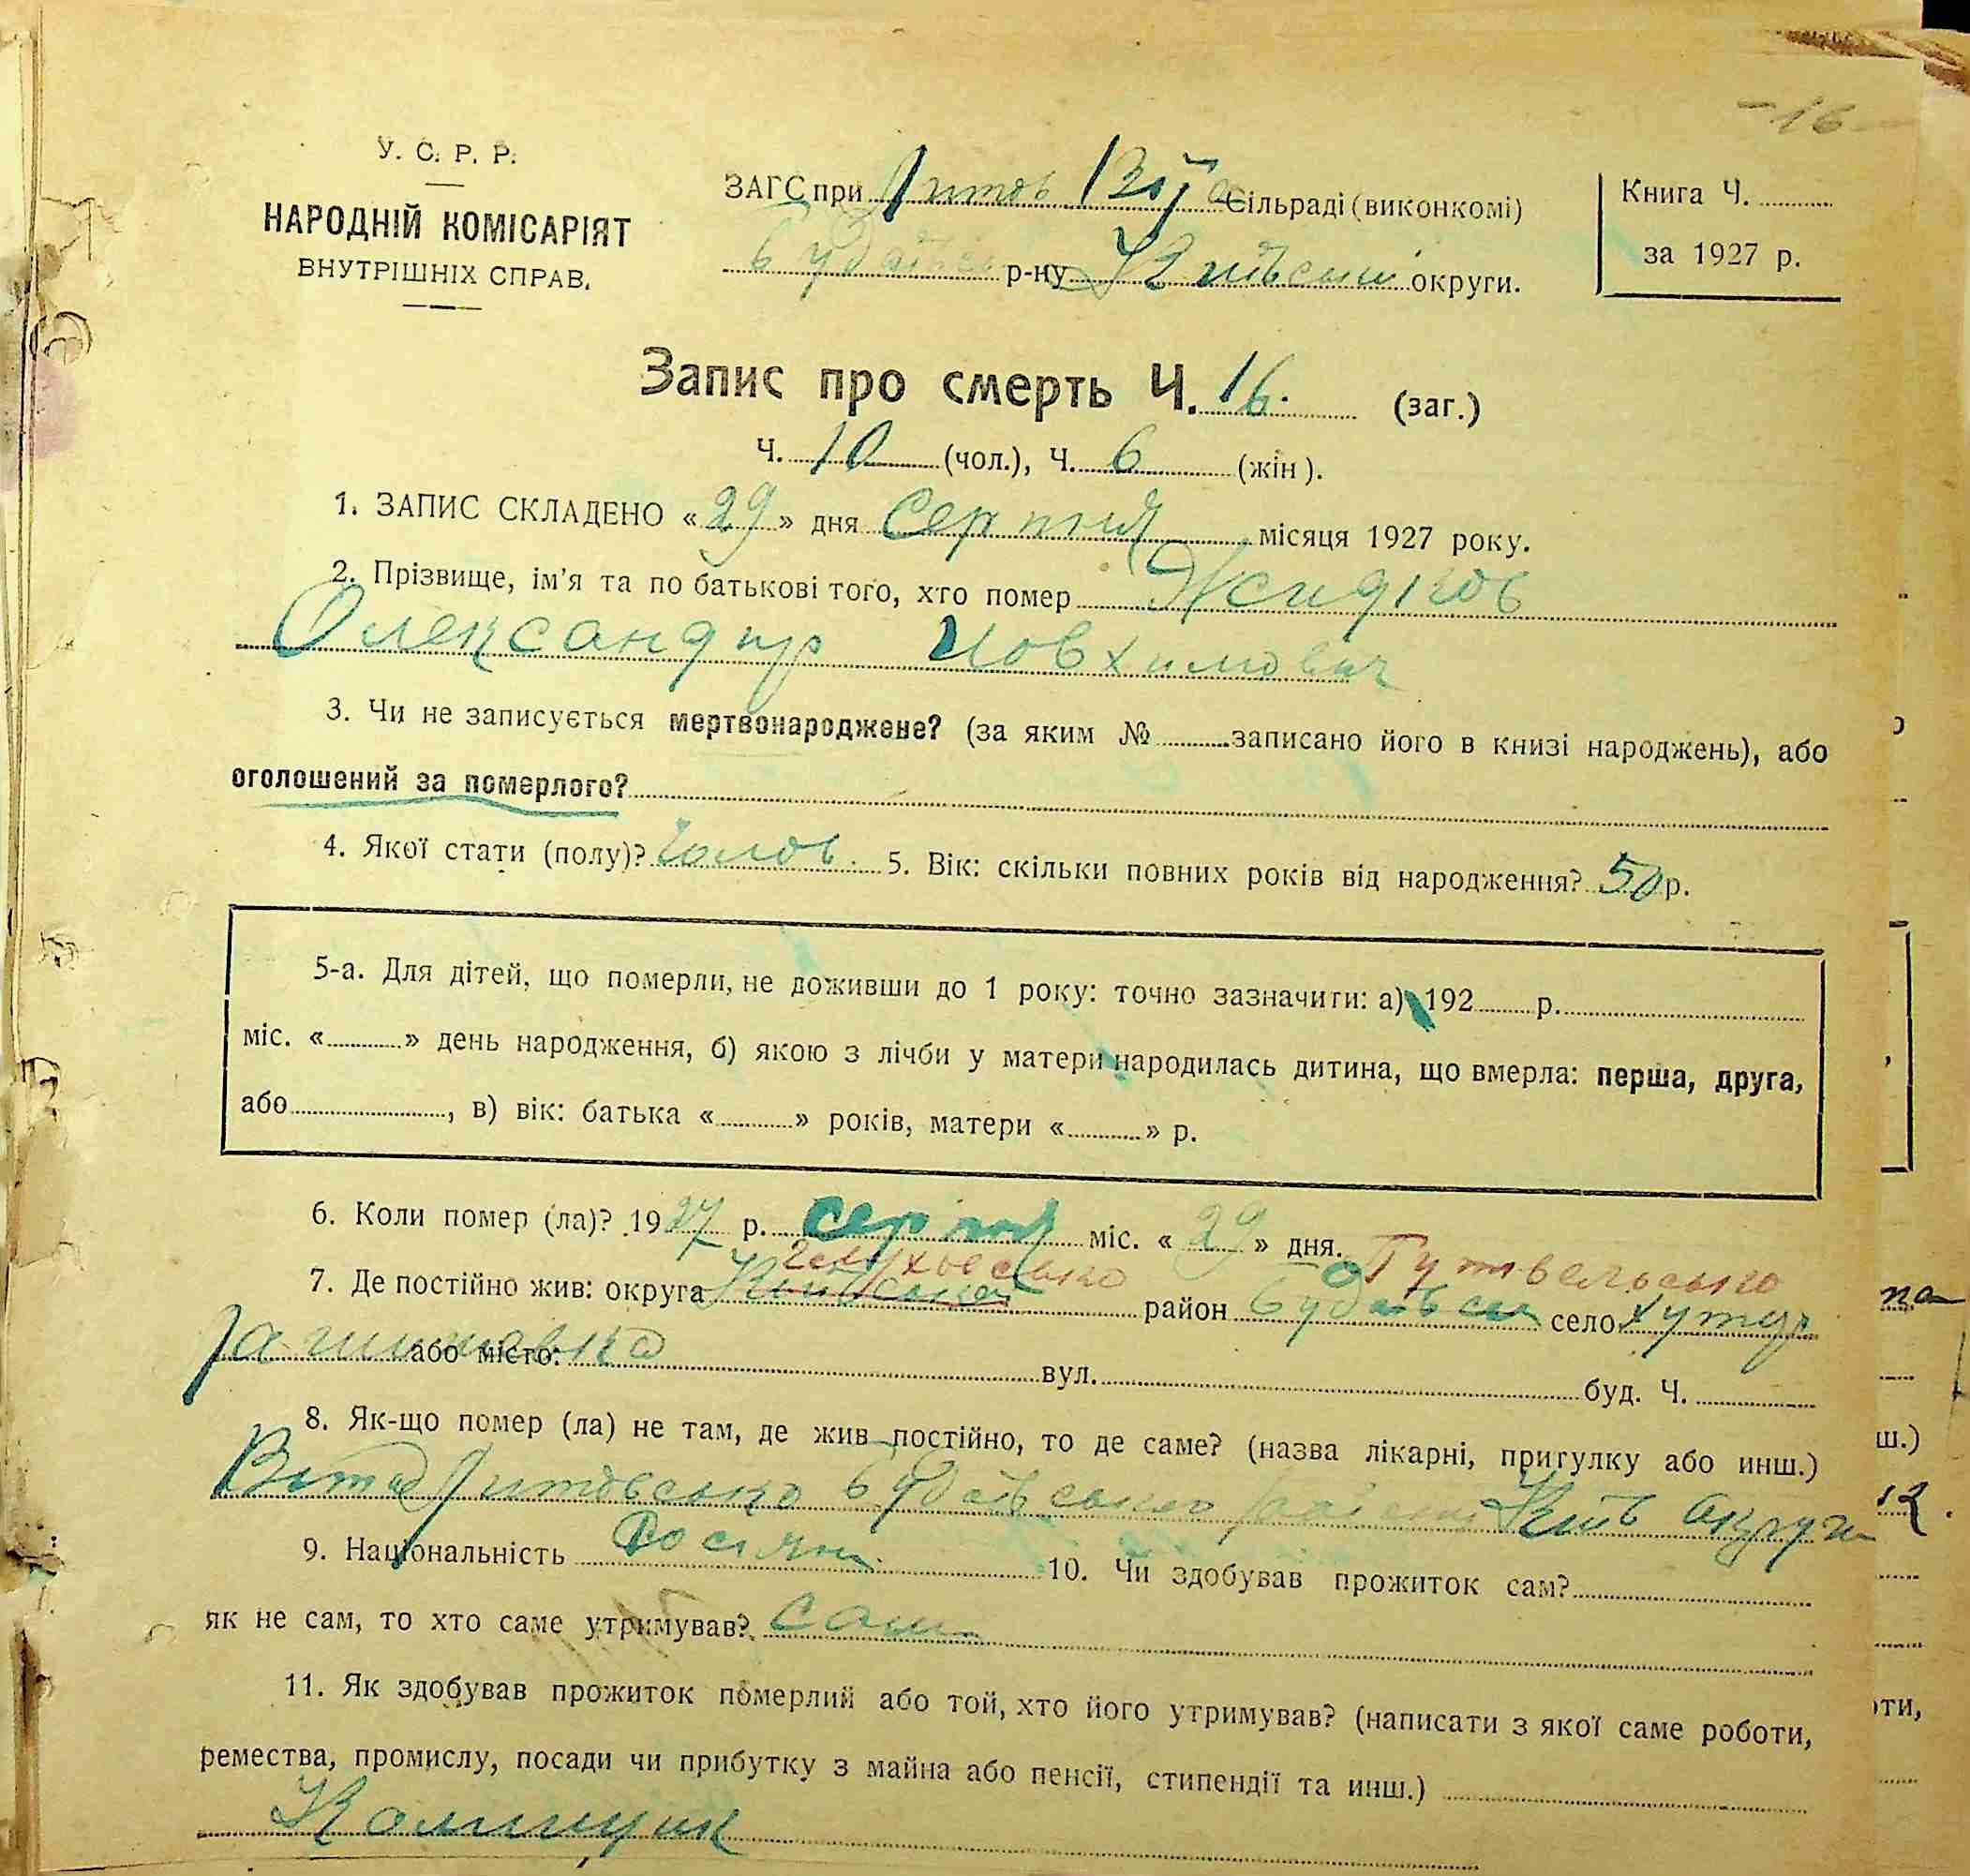 -16
У. С. Р. Р.
НАРОДНІЙ КОМІСАРІЯТ
ВНУТРІШНІХ СПРАВ.
ЗАГС при Литов Віт Сільраді (виконкомі)
Будаївс р-ну Київськ округи.
Книга Ч.
за 1927 р.
Запис про смерть Ч. 16. (заг.)
Ч. 10 (чол.), Ч. 6 (жін).
1. ЗАПИС СКЛАДЕНО «29» дня Серпня місяця 1927 року.
2. Прізвище, ім'я та по батькові того, хто помер Жидков
Олександир Иовхимович
3. Чи не записується мертвонароджене? (за яким № записано його в книзі народжень), або
оголошений за померлого?
4. Якої стати (полу)? Чолов. 5. Вік: скільки повних років від народження? 50 р.
5-а. Для дітей, що померли, не доживши до 1 року: точно зазначити: а) 192 р.
міс. « » день народження, б) якою з лічби у матери народилась дитина, що вмерла: перша, друга,
або , в) вік: батька « » років, матери « » р.
6. Коли помер (ла)? 1927 р. серпня міс. «29» дня.
Глухосвсько Путвельсько
7. Де постійно жив: округа Київської район Будаївськ село хутур
або місто: вул. буд. Ч.
8. Як-що помер (ла) не там, де жив постійно, то де саме? (назва лікарні, пригулку або инш.)
Вита Литовсько Будаївського району Київ округи
9. Національність Росіян. 10. Чи здобував прожиток сам?
як не сам, то хто саме утримував? Сам
11. Як здобував прожиток померлий або той, хто його утримував? (написати з якої саме роботи,
ремества, промислу, посади чи прибутку з майна або пенсії, стипендії та инш.)
Каминщик